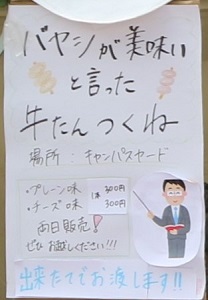 バヤシが美味い
と言った
牛たんつくね
場所：キャンパスセード
・プレーン味 1本 300円
・チーズ味 300円
両日販売!
ぜひお越しください!!!
出来たてでお渡します!!